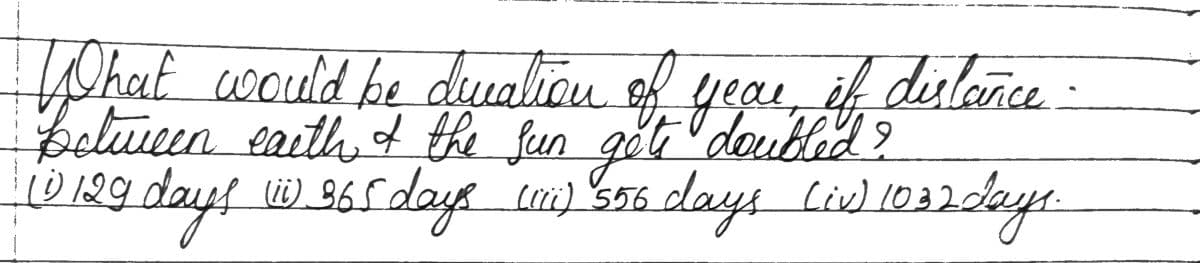 What would be duration of year, if distance -
between earth & the sun gets doubled?
(i) 129 days (ii) 365 days (iii) 556 days (iv) 1032 days.